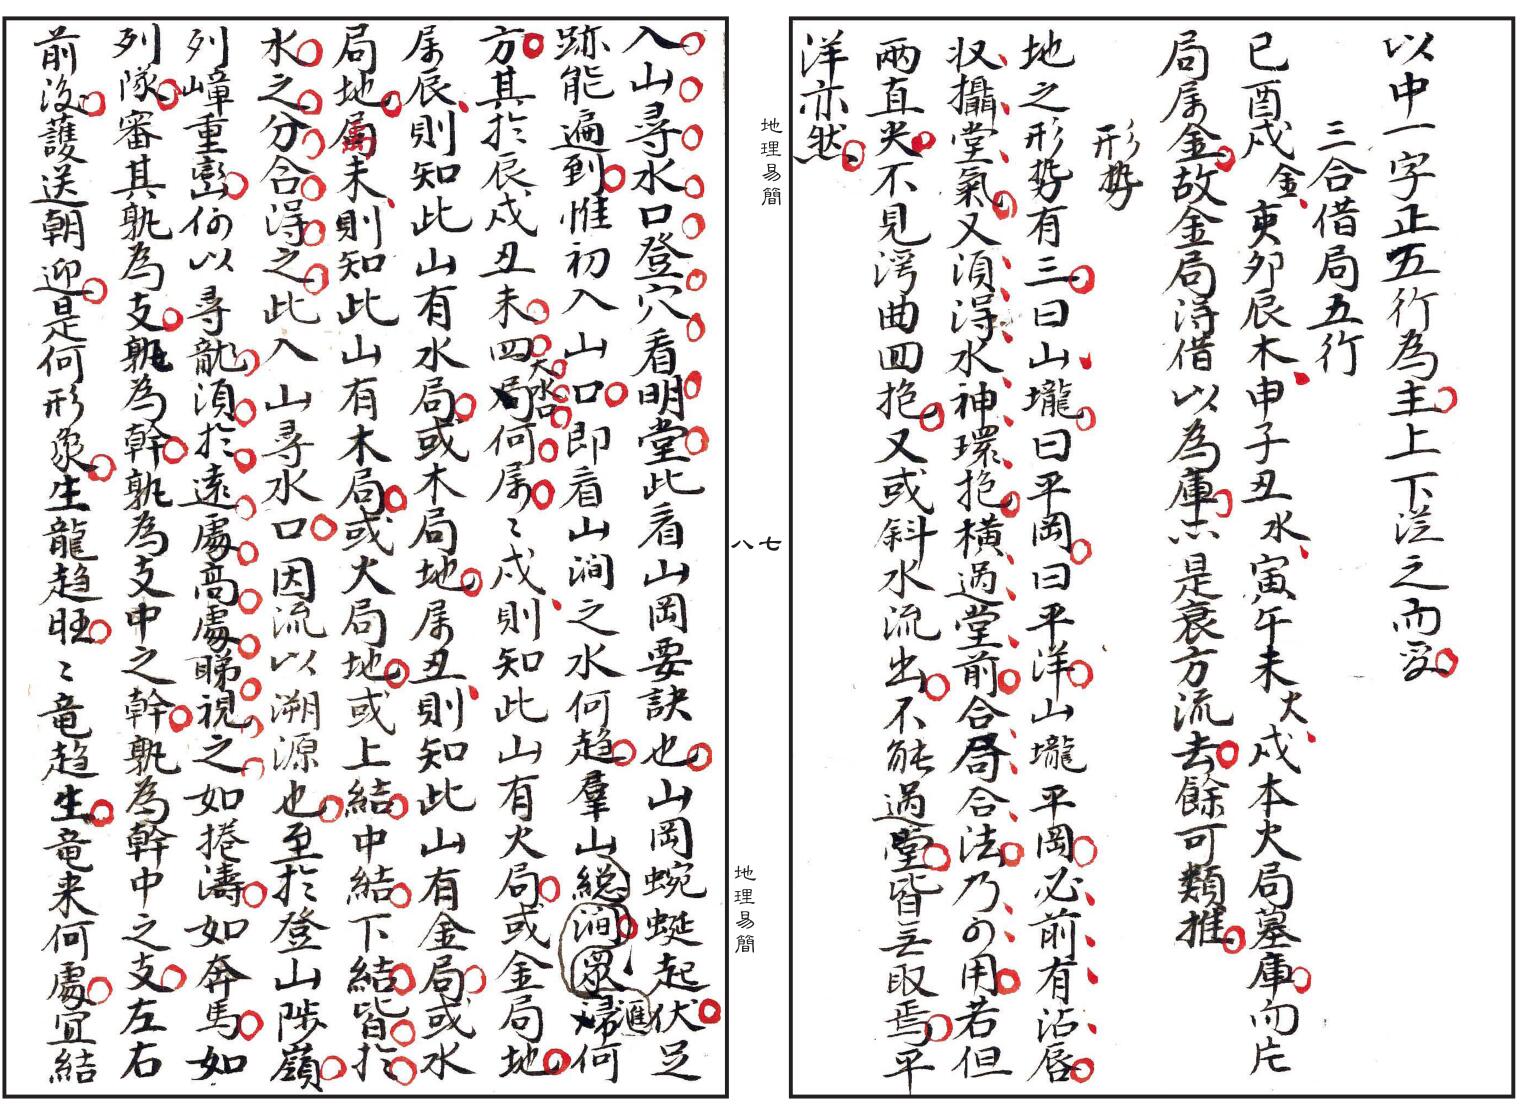 以中一字正五行為主上下従之而受
三合借局五行
巳酉戌金寅卯辰木申子丑水寅午未火戌本火局墓庫而片
局属金故金局得借以為庫亦是衰方流去餘可類推
形勢
地之形勢有三曰山壠曰平岡曰平洋山壠平岡必前有沾唇
収攝堂氣又須得水神環抱橫過堂前合局合法乃可用若但
兩直夾不見湾曲回抱又或斜水流出不能過堂皆无取焉平
洋亦然
地理易簡
八七
地理易簡
入山尋水口登穴看明堂此看山岡要訣也山岡蜿蜒起伏足
跡能遍到惟初入山口即看山澗之水何趨羣山総澗眾歸匯何
方其於辰戌丑未四大水口局何属〻戌則知此山有火局或金局地
属辰則知此山有水局或木局地属丑則知此山有金局或水
局地属未則知此山有木局或火局地或上結中結下結皆於
水之分合得之此入山尋水口因流以溯源也至於登山陟嶺
列嶂重巒何以尋龍須於遠處高處睇視之如捲濤如奔馬如
列隊審其孰為支孰為幹孰為支中之幹孰為幹中之支左右
前後護送朝迎是何形象生龍趨旺〻竜趨生竜来何處宜結